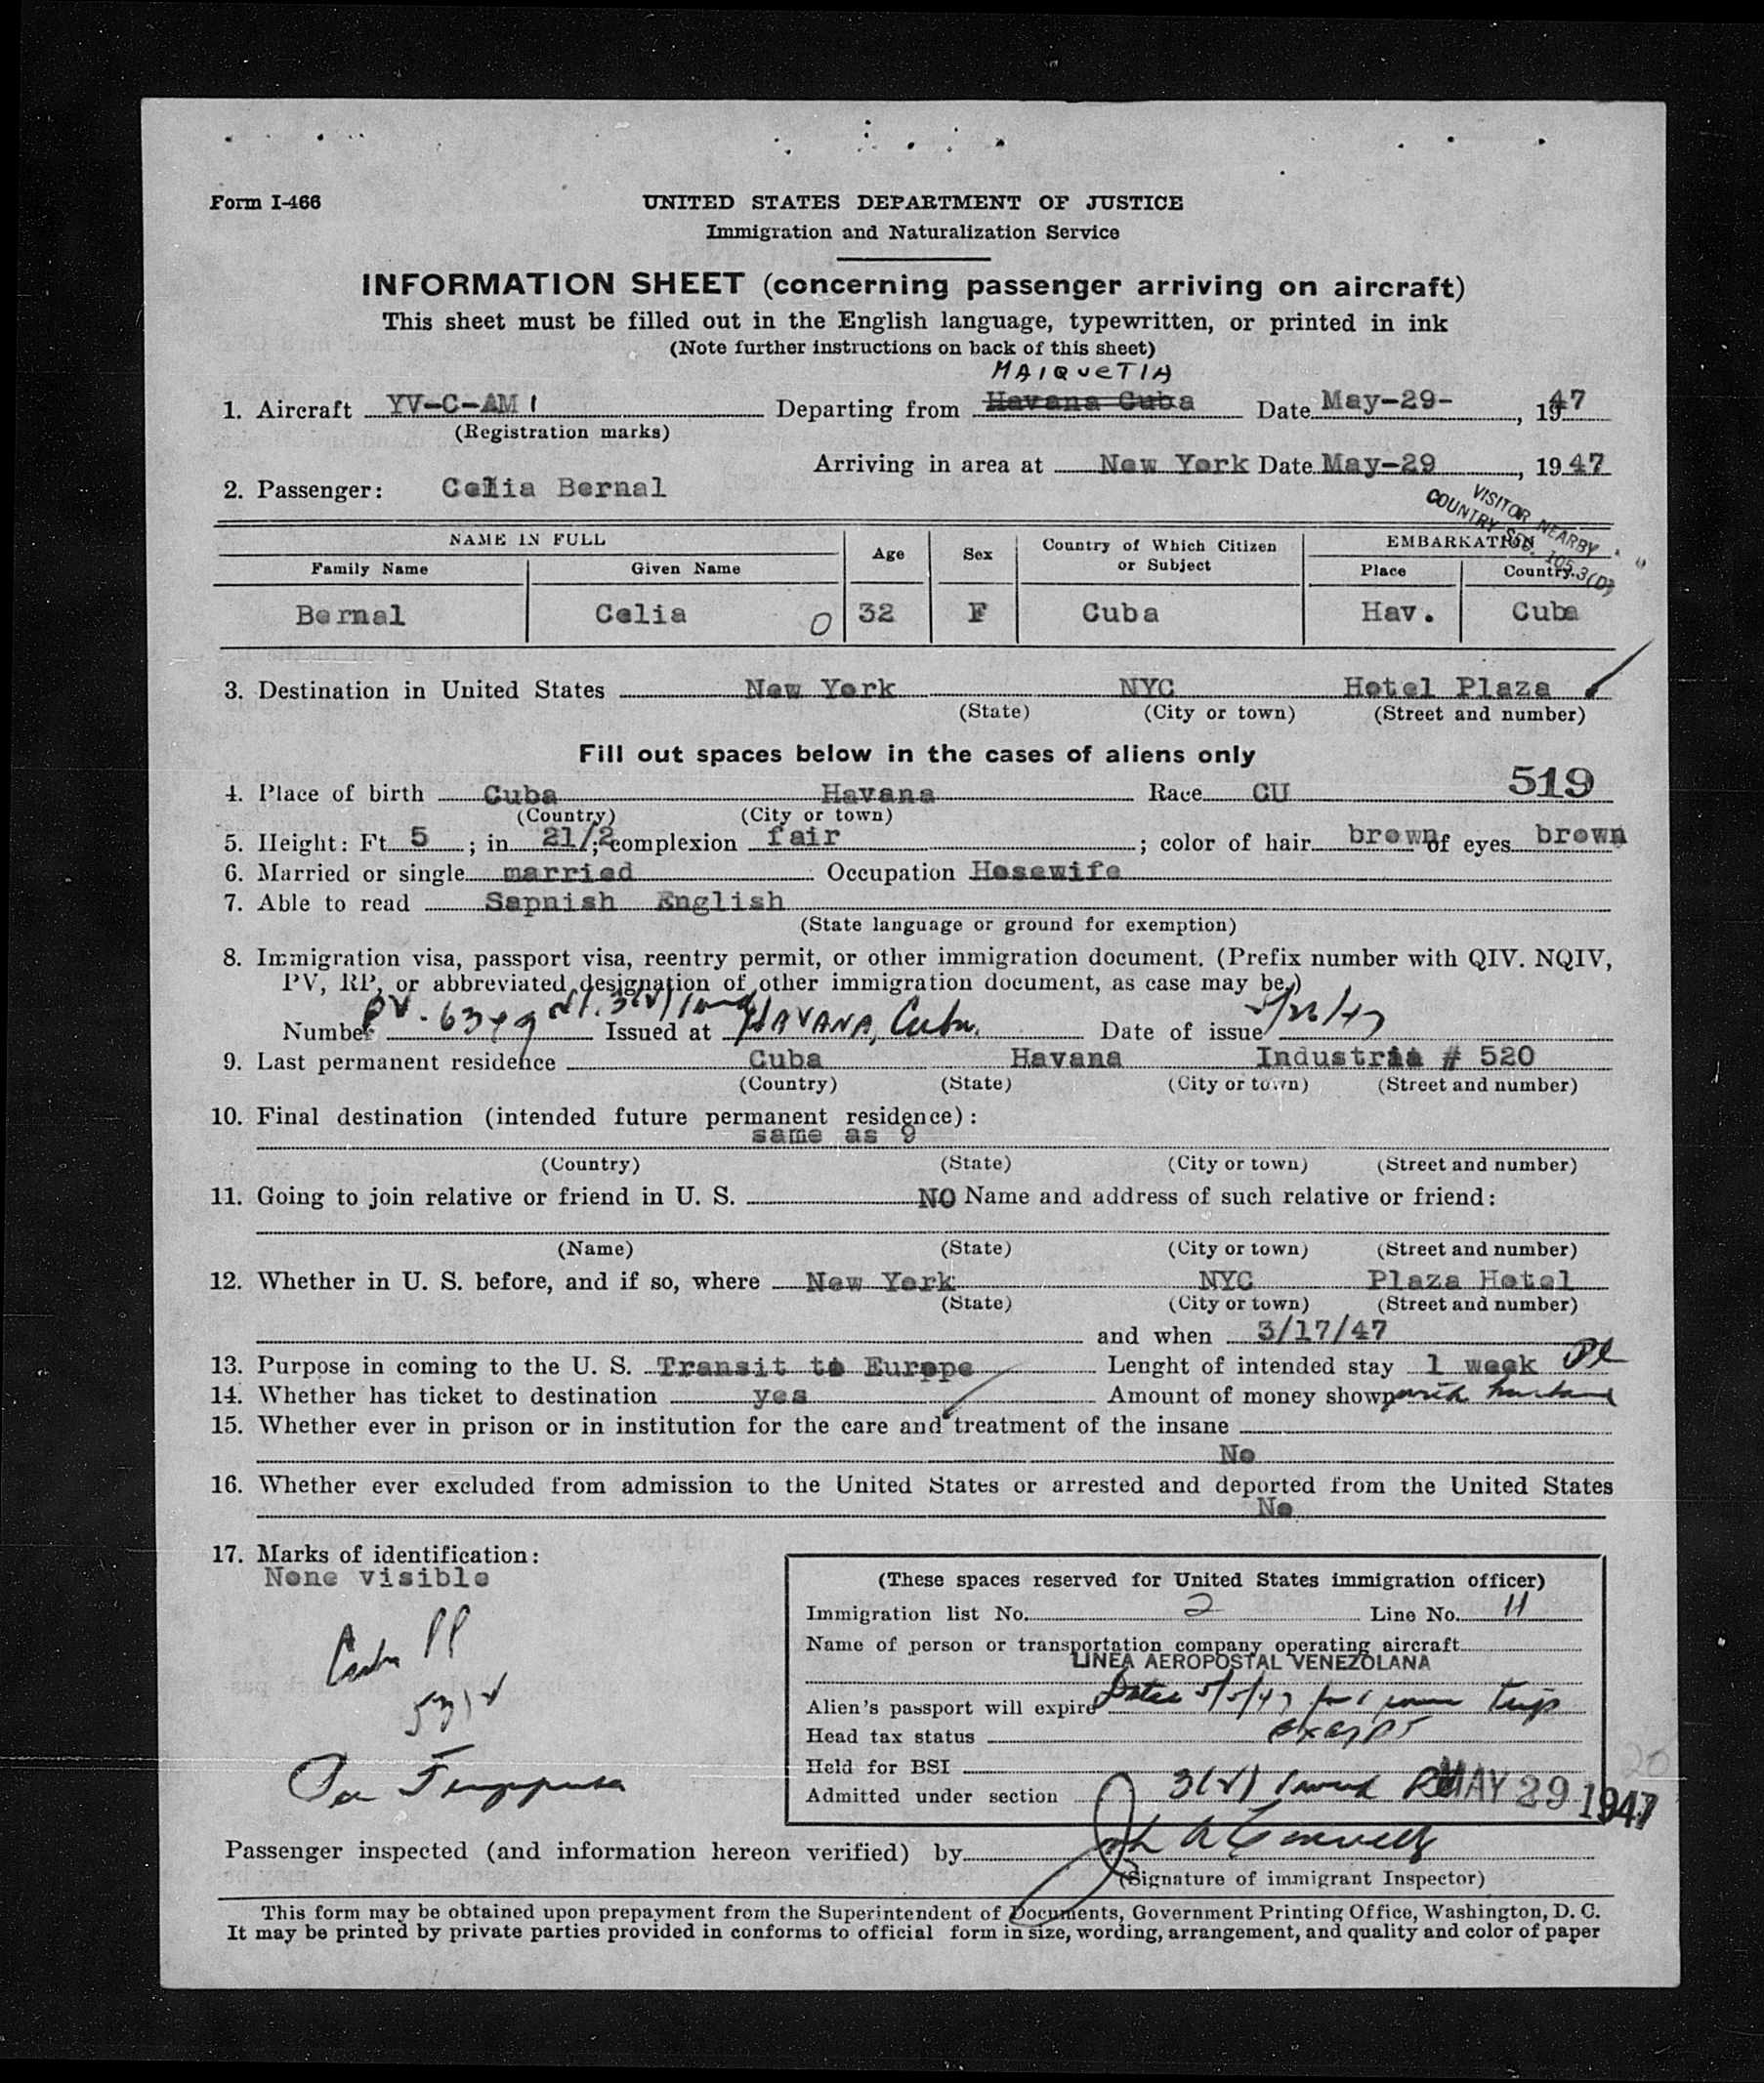 Form I-466
UNITED STATES DEPARTMENT OF JUSTICE
Immigration and Naturalization Service
INFORMATION SHEET (concerning passenger arriving on aircraft)
This sheet must be filled out in the English language, typewritten, or printed in ink
(Note further instructions on back of this sheet)
MAIQUETIA
1. Aircraft YV-C-AM1 Departing from Havana Cuba Date May-29-, 1947
(Registration marks)
Arriving in area at New York Date May-29, 1947
2. Passenger: Celia Bernal
VISITOR NEARBY
COUNTRY SEC. 105.3(D)
NAME IN FULL Age Sex Country of Which Citizen or Subject EMBARKATION
Family Name Given Name Place Country
Bernal Celia 0 32 F Cuba Hav. Cuba
3. Destination in United States New York NYC Hotel Plaza
(State) (City or town) (Street and number)
Fill out spaces below in the cases of aliens only
519
4. Place of birth Cuba Havana Race CU
(Country) (City or town)
5. Height: Ft. 5; in. 21/2; complexion fair; color of hair brown of eyes brown
6. Married or single married Occupation Hosewife
7. Able to read Sapnish English
(State language or ground for exemption)
8. Immigration visa, passport visa, reentry permit, or other immigration document. (Prefix number with QIV. NQIV,
PV, RP, or abbreviated designation of other immigration document, as case may be.)
Number PV-6349 Issued at HAVANA, Cuba. Date of issue
9. Last permanent residence Cuba Havana Industria # 520
(Country) (State) (City or town) (Street and number)
10. Final destination (intended future permanent residence):
same as 9
(Country) (State) (City or town) (Street and number)
11. Going to join relative or friend in U. S. NO Name and address of such relative or friend:
(Name) (State) (City or town) (Street and number)
12. Whether in U. S. before, and if so, where New York NYC Plaza Hotel
(State) (City or town) (Street and number)
and when 3/17/47
13. Purpose in coming to the U. S. Transit to Europe Lenght of intended stay 1 week
14. Whether has ticket to destination yes Amount of money shown with husband
15. Whether ever in prison or in institution for the care and treatment of the insane
No
16. Whether ever excluded from admission to the United States or arrested and deported from the United States
No
17. Marks of identification:
None visible
Cuba PP
(These spaces reserved for United States immigration officer)
Immigration list No. 2 Line No. 11
Name of person or transportation company operating aircraft
LINEA AEROPOSTAL VENEZOLANA
Alien's passport will expire Dated 5/5/47 for 1 Trip
Head tax status exempt
Held for BSI
Admitted under section 3(2) 1 week MAY 29 1947
Passenger inspected (and information hereon verified) by
(Signature of immigrant Inspector)
This form may be obtained upon prepayment from the Superintendent of Documents, Government Printing Office, Washington, D. C.
It may be printed by private parties provided in conforms to official form in size, wording, arrangement, and quality and color of paper